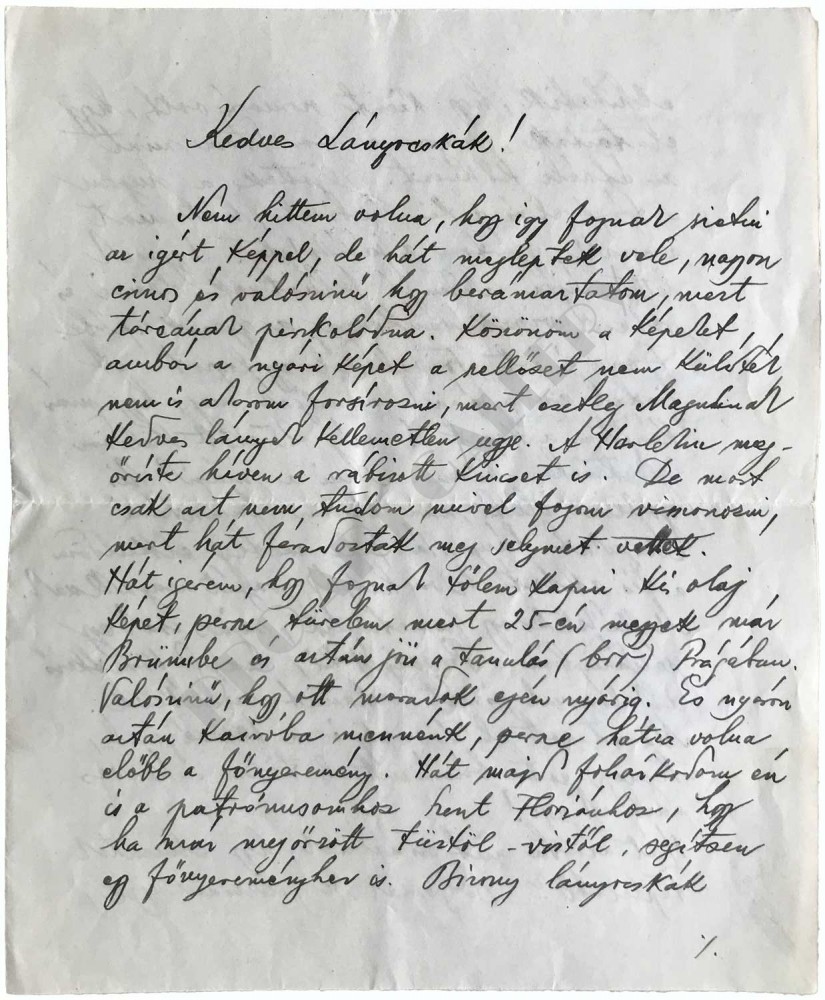 Kedves Lányocskák!
Nem hittem volna, hogy így fognak sietni
az igért képpel, de hát megleptek vele, nagyon
csinos és valószinű hogy berámáztatom, mert
tárcánál piszkolódna. Köszönöm a képeket,
ámbár a nyári képet a szellőset nem küldték
nem is akarom forszírozni, mert esetleg Maguknak
kedves lányok kellemetlen ugye. A Harlekin meg-
őrizte híven a rábizott kincset is. De most
csak azt nem tudom mivel fogom viszonozni,
mert hát fáradoztak meg selymet vettek.
Hát igérem, hogy fognak tőlem kapni kis olaj
képet, persze türelem mert 25-én megyek már
Brünnbe és aztán jön a tanulás (brr) Prágában.
Valószinű, hogy ott maradok egész nyárig. És nyáron
aztán Kairóba mennénk, persze hátra volna
előbb a főnyeremény. Hát majd fohászkodom én
is a patrónusomhoz Szent Flóriánhoz, hogy
ha már megőrzött tűztől-viztől, segítsen
egy főnyereményhez is. Bizony lányocskák
./.